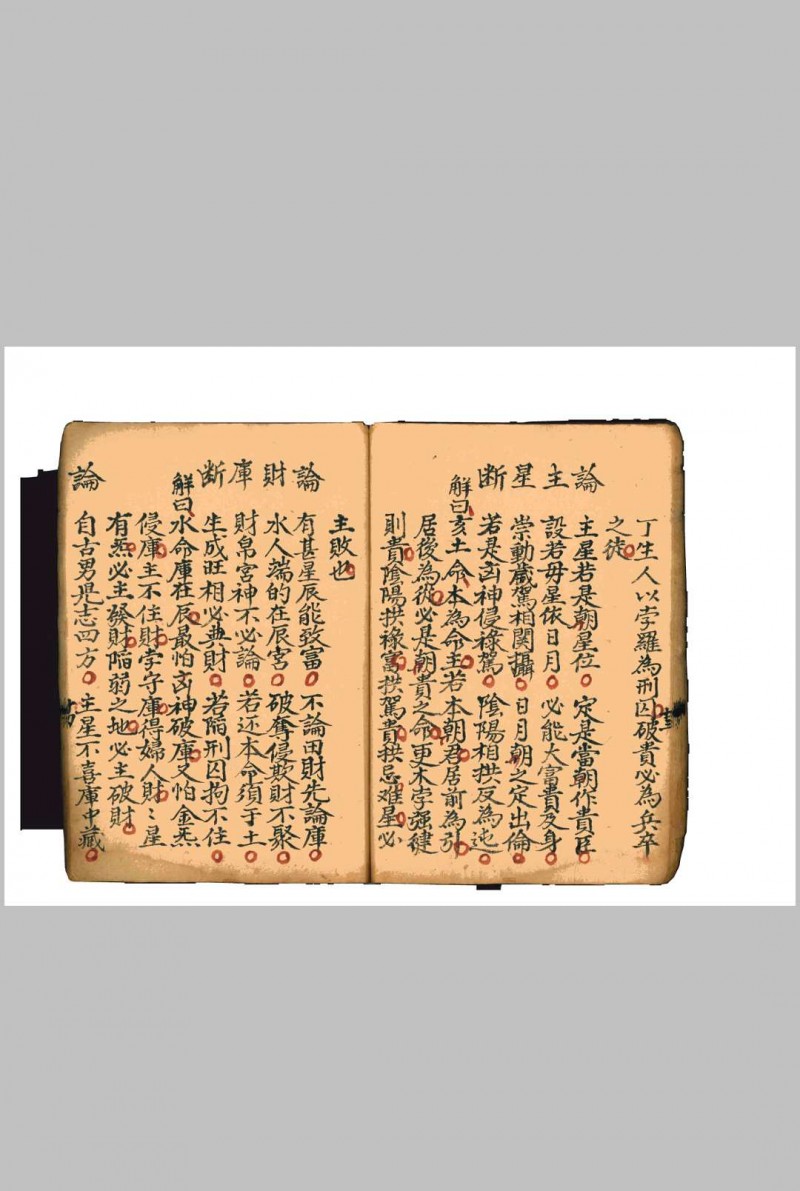 丁生人以孛羅為刑囚破貴必為兵卒
之徒
論主星断
主星若是朝星位 定是當朝作貴臣
設若毋星依日月 必能大富貴及身
崇動歲駕相関攝 日月朝之定出倫
若是凶神侵祿駕 陰陽相拱反為迍
解曰亥土命木為命主若本朝君居前為引
居後為從必是朝貴之命更木孛强健
則貴陰陽拱祿富拱駕貴拱忌难星必
主敗也
論財庫断
有甚星辰能致富 不論田財先論庫
水人端的在辰宮 破奪侵欺財不聚
財帛宮神不必論 若还本命須于土
生成旺相必典財 若陷刑囚拘不住
解曰水命庫在辰最怕凶神破庫又怕金炁
侵庫主不住財孛守庫得婦人財〻星
有炁必主發財陥弱之地必主破財
論
自古男児志四方 主星不喜庫中藏